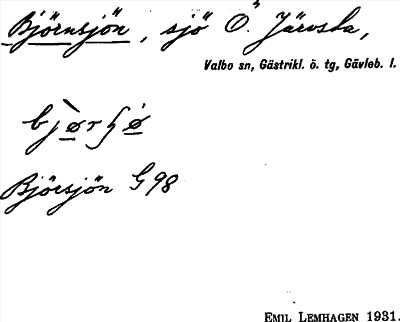 Björnsjön, sjö Ö. Järvsta,
Valbo sn, Gästrikl. ö. tg, Gävleb. l.
Björsjön G98
EMIL LEMHAGEN 1931.